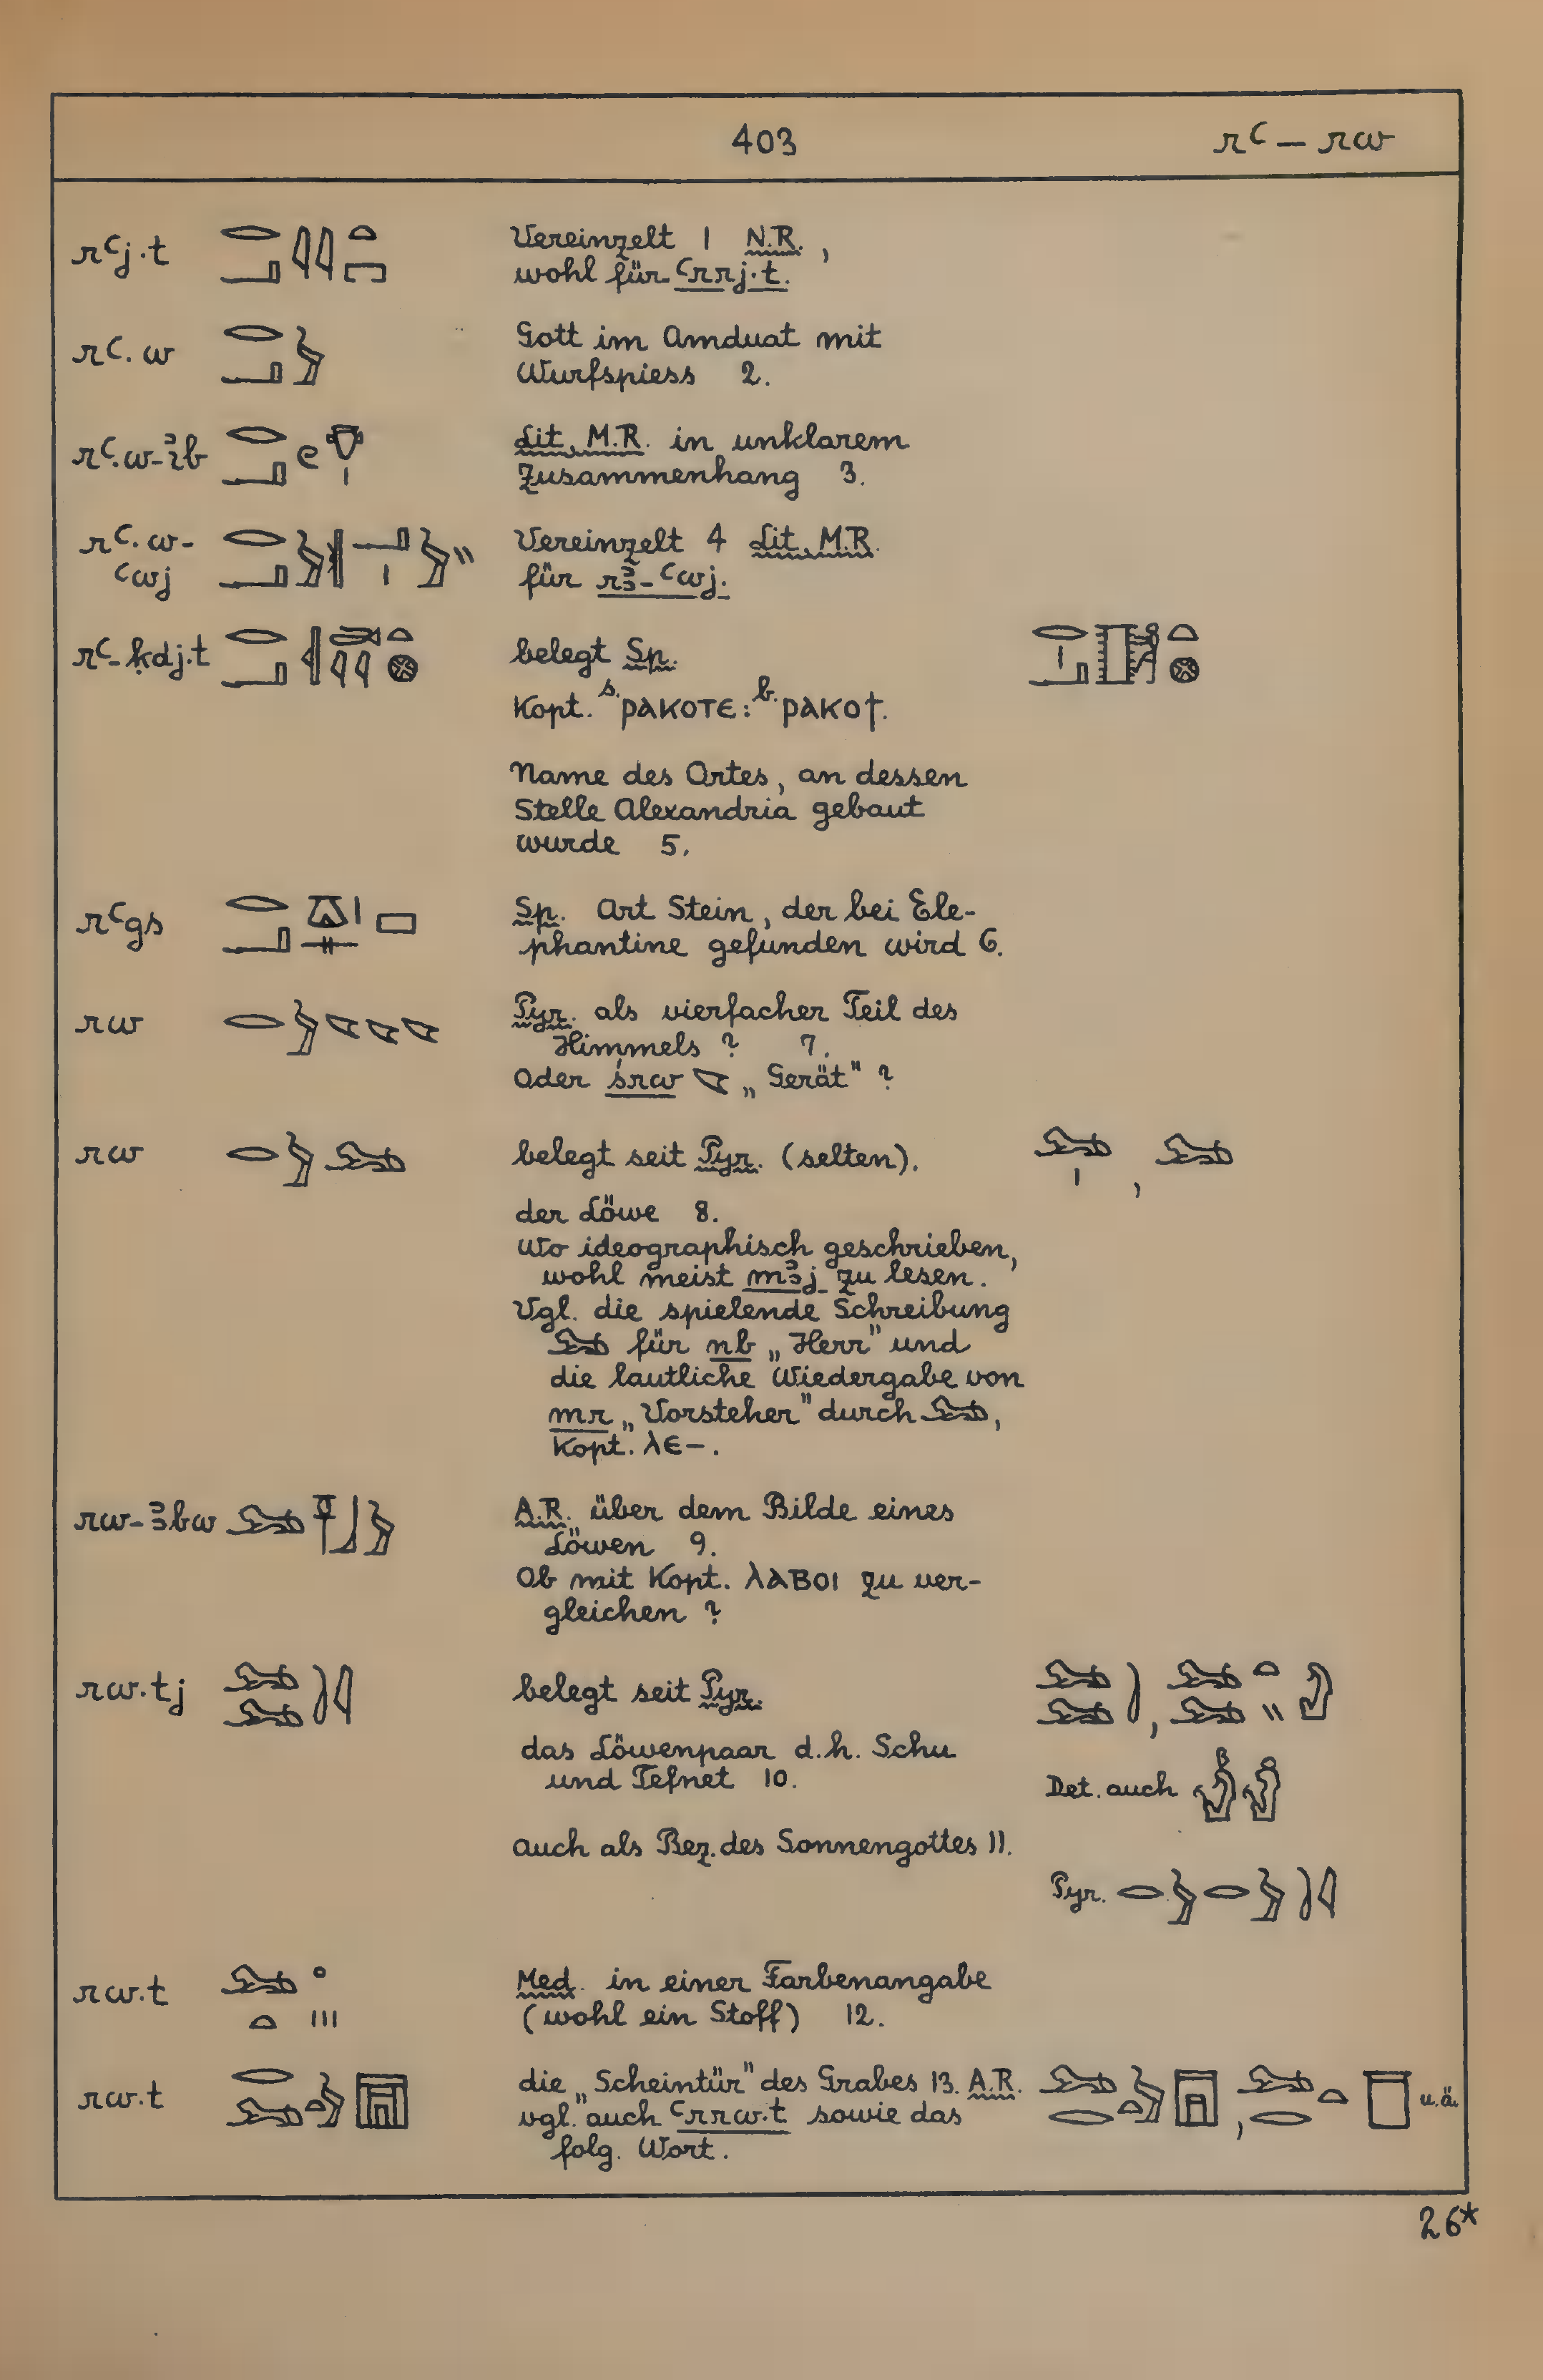 403
rꜥ – rw
rꜥj.t
Vereinzelt 1 N.R.,
wohl für ꜥrrj.t.
rꜥ.w
Gott im Amduat mit
Wurfspiess 2.
rꜥ.w-ib
Lit. M.R. in unklarem
Zusammenhang 3.
rꜥ.w-
ꜥwj
Vereinzelt 4 Lit. M.R.
für rꜣ-ꜥwj.
rꜥ-ḳdj.t
belegt Sp.
Kopt. s. ⲣⲁⲕⲟⲧⲉ: b. ⲣⲁⲕⲟϯ.
Name des Ortes, an dessen
Stelle Alexandria gebaut
wurde 5.
rꜥgs
Sp. Art Stein, der bei Ele-
phantine gefunden wird 6.
rw
Pyr. als vierfacher Teil des
Himmels? 7.
Oder śrw „Gerät“?
rw
belegt seit Pyr. (selten).
der Löwe 8.
Wo ideographisch geschrieben,
wohl meist mꜣj zu lesen.
Vgl. die spielende Schreibung
für nb „Herr“ und
die lautliche Wiedergabe von
mr „Vorsteher“ durch ,
Kopt. ⲗⲉ–.
rw-ꜣbw
A.R. über dem Bilde eines
Löwen 9.
Ob mit Kopt. ⲗⲁⲃⲟⲓ zu ver-
gleichen?
rw.tj
belegt seit Pyr.
das Löwenpaar d.h. Schu
und Tefnet 10.
Det. auch
auch als Bez. des Sonnengottes 11.
Pyr.
rw.t
Med. in einer Farbenangabe
(wohl ein Stoff) 12.
rw.t
die „Scheintür“ des Grabes 13. A.R. u.ä.
vgl. auch ꜥrrw.t sowie das
folg. Wort.
26*